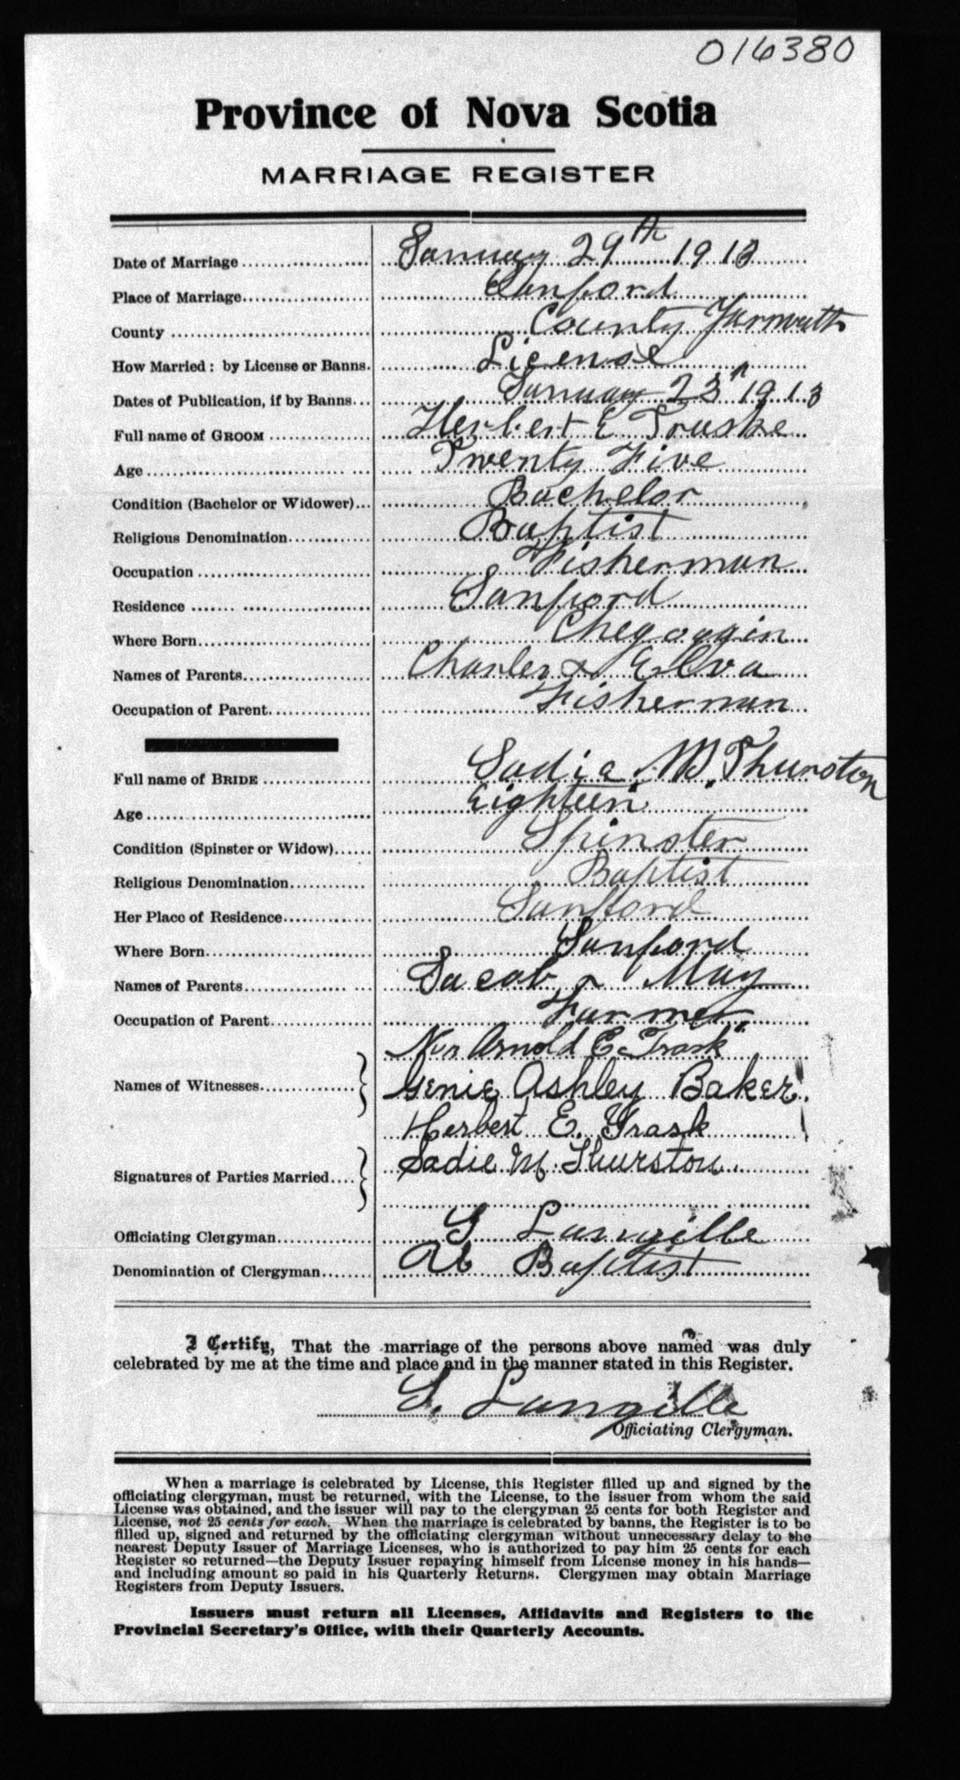 016380
Province of Nova Scotia
MARRIAGE REGISTER
Date of Marriage January 29th 1913
Place of Marriage Sanford
County County Yarmouth
How Married: by License or Banns. License
Dates of Publication, if by Banns January 23rd 1913
Full name of GROOM Herbert E Traske
Age Twenty Five
Condition (Bachelor or Widower) Bachelor
Religious Denomination Baptist
Occupation Fisherman
Residence Sanford
Where Born Chegoggin
Names of Parents Charles & Elva
Occupation of Parent Fisherman
Full name of BRIDE Sadie M. Thurston
Age Eighteen
Condition (Spinster or Widow) Spinster
Religious Denomination Baptist
Her Place of Residence Sanford
Where Born Sanford
Names of Parents Jacob & May
Occupation of Parent Farmer
Arnold E. Trask
Names of Witnesses Genie Ashley Baker.
Herbert E. Trask
Signatures of Parties Married Sadie M. Thurston.
Officiating Clergyman Langille
Denomination of Clergyman Baptist
I Certify, That the marriage of the persons above named was duly
celebrated by me at the time and place and in the manner stated in this Register.
Langille
Officiating Clergyman.
When a marriage is celebrated by License, this Register filled up and signed by the
officiating clergyman, must be returned, with the License, to the issuer from whom the said
License was obtained, and the issuer will pay to the clergyman 25 cents for both Register and
License, not 25 cents for each. When the marriage is celebrated by banns, the Register is to be
filled up, signed and returned by the officiating clergyman without unnecessary delay to the
nearest Deputy Issuer of Marriage Licenses, who is authorized to pay him 25 cents for each
Register so returned—the Deputy Issuer repaying himself from License money in his hands—
and including amount so paid in his Quarterly Returns. Clergymen may obtain Marriage
Registers from Deputy Issuers.
Issuers must return all Licenses, Affidavits and Registers to the
Provincial Secretary's Office, with their Quarterly Accounts.